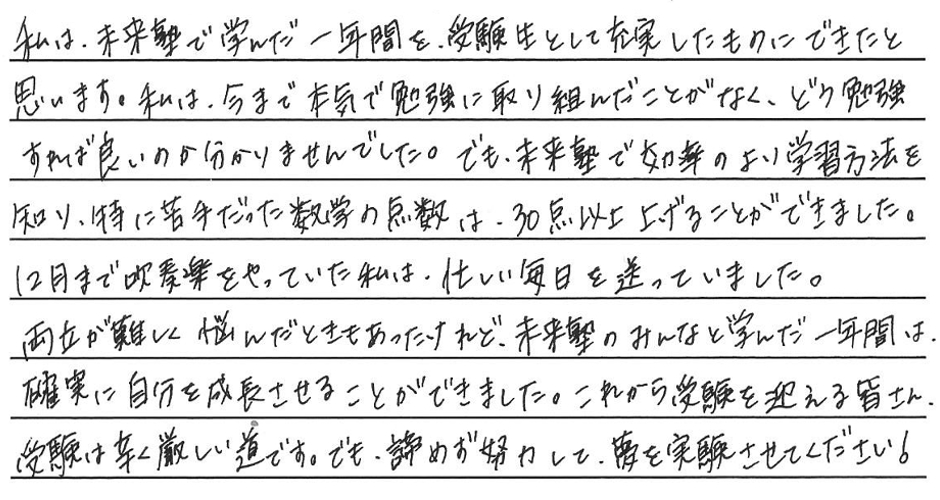 私は、未来塾で学んだ一年間を、受験生として充実したものにできたと
思います。私は、今まで本気で勉強に取り組んだことがなく、どう勉強
すれば良いのか分かりませんでした。でも、未来塾で効率のよい学習方法を
知り、特に苦手だった数学の点数は、30点以上上げることができました。
12月まで吹奏楽をやっていた私は、忙しい毎日を送っていました。
両立が難しく悩んだときもあったけれど、未来塾のみんなと学んだ一年間は、
確実に自分を成長させることができました。これから受験を迎える皆さん、
受験は辛く厳しい道です。でも、諦めず努力して、夢を実験させてください!